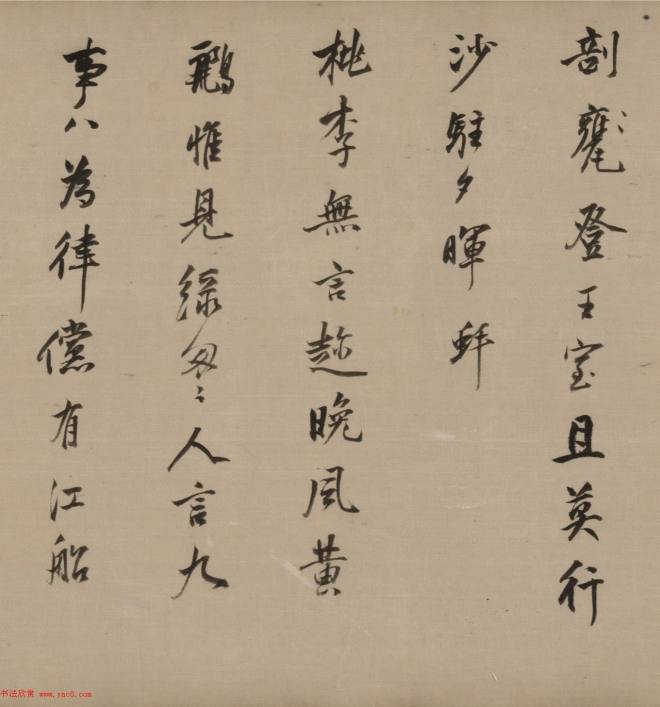 剖登王室且莫行
沙駐夕暉蚌
桃李無言趂晚風黃
鸝惟見綠匆〻人言九
事八為律儻有江船
书法欣赏 www.yac8.com